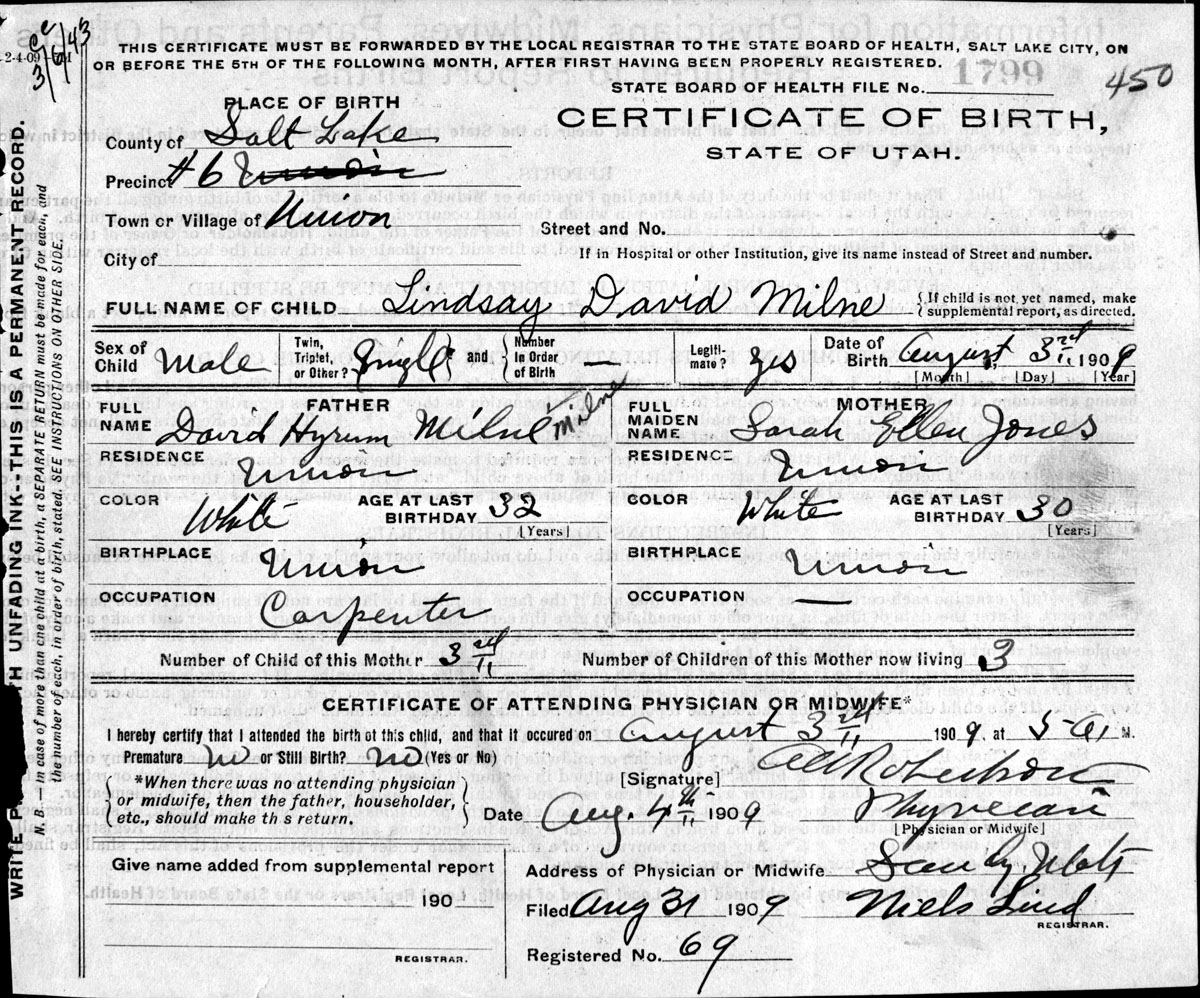 THIS CERTIFICATE MUST BE FORWARDED BY THE LOCAL REGISTRAR TO THE STATE BOARD OF HEALTH, SALT LAKE CITY, ON
OR BEFORE THE 5TH OF THE FOLLOWING MONTH, AFTER FIRST HAVING BEEN PROPERLY REGISTERED.
1799
450
STATE BOARD OF HEALTH FILE No.
PLACE OF BIRTH
CERTIFICATE OF BIRTH,
STATE OF UTAH.
County of Salt Lake
Precinct #6 Union
Town or Village of Union
Street and No.
City of
If in Hospital or other Institution, give its name instead of Street and number.
FULL NAME OF CHILD Lindsay David Milne {If child is not yet named, make supplemental report, as directed.
Sex of Child Male Twin, Triplet, or Other? Single and Number in Order of Birth — Legitimate? yes Date of Birth August, 3rd 1909
[Month] [Day] [Year]
FATHER MOTHER
FULL NAME David Hyrum Milne Milne FULL MAIDEN NAME Sarah Ellen Jones
RESIDENCE Union RESIDENCE Union
COLOR White AGE AT LAST BIRTHDAY 32 [Years] COLOR White AGE AT LAST BIRTHDAY 30 [Years]
BIRTHPLACE Union BIRTHPLACE Union
OCCUPATION Carpenter OCCUPATION —
Number of Child of this Mother 3rd Number of Children of this Mother now living 3
CERTIFICATE OF ATTENDING PHYSICIAN OR MIDWIFE*
I hereby certify that I attended the birth of this child, and that it occured on August 3rd 1909. at 5 A. M.
Premature no or Still Birth? no (Yes or No)
*When there was no attending physician or midwife, then the father, householder, etc., should make th s return.
[Signature] Robertson
Date Aug. 4th 1909 Physician
[Physician or Midwife]
Give name added from supplemental report
190
REGISTRAR.
Address of Physician or Midwife Sandy, Utah
Filed Aug 31 1909 Niels Lind
REGISTRAR.
Registered No. 69
WRITE UNFADING INK--THIS IS A PERMANENT RECORD.
N. B. In case of more than one child at a birth, a SEPARATE RETURN must be made for each, and
the number of each, in order of birth, stated. SEE INSTRUCTIONS ON OTHER SIDE.